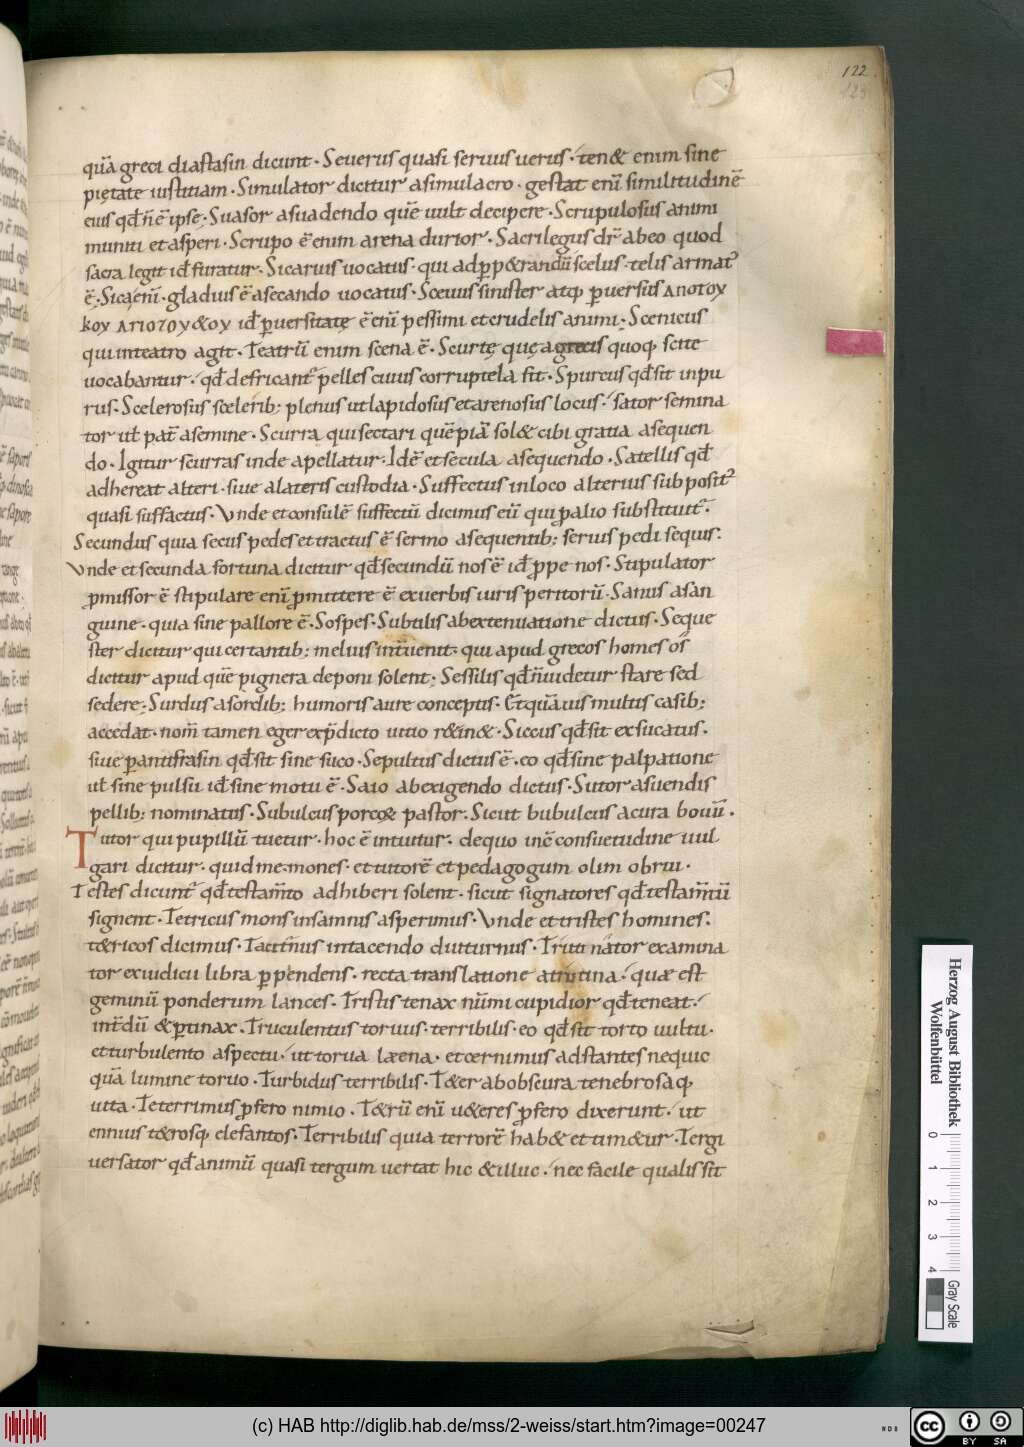 122
123
quā greci diastasin dicunt · Seuerus quasi seruus uerus · ten& enim sine
pietate iustitiam · Simulator dicitur asimulacro · gestat enī similitudinē
eius qđ ñ ē ipse · Suasor asuadendo quē uult decipere · Scrupulosus animi
muniti et asperi · Scrupo ē enim arena durior · Sacrilegus dr̄ abeo quod
sacra legit id furatur · Sicarius uocatus · qui ad perp&randū scelus · telis armat᷒
ē · Sica enī · gladius ē asecando uocatus · Sceuus sinister atq; peruersus ΑΠΟΤΟΥ
id peruersitate ē enī pessimi et crudelis animi · Scenicus
qui inteatro agit · Teatrū enim scena ē · Scurtę quę agrecis quoq; scite
uocabantur · qđ defricant᷒ pelles cuius corruptela fit · Spurcus qđ sit inpu
rus · Scelerosus scelerib; plenus ut lapidosus et arenosus locus · sator semina
tor uł pat̄ asemine · Scurra qui sectari quēpiā sol& cibi gratia asequen
do · Igitur scurras inde apellatur · Idē et secula asequendo · Satellis qđ
adhereat alteri · siue alateris custodia · Suffectus inloco alterius subposit᷒
quasi suffactus · Vnde et consulē suffectū dicimus eū qui palio substituit᷒ ·
Secundus quia secus pedes et tractus ē sermo asequentib; seruis pedisequis ·
Vnde et secunda fortuna dicitur qđ secundū nos ē id prope nos · Stipulator
promissor ē stipulare enī promittere ē ex uerbis iuris peritorū · Sanus asan
guine · quia sine pallore ē · Sospes · Subtilis ab extenuatione dictus · Seque
ster dicitur qui certantib; melius int̄uenit · qui apud grecos
dicitur apud quē pignera deponi solent · Sessilis qđ ñ uidetur stare sed
sedere · Surdus asordib; humoris aure conceptis · Et quāuis multis casib;
accedat · nom̄ tamen eger expdicto uitio r&in& · Siccus qđ sit exsucatus ·
siue p antifrasin qđ sit sine suco · Sepultus dictus ē · eo qđ sine palpatione
uł sine pulsu id sine motu ē · Saio abexigendo dictus · Sutor asuendis
pellib; nominatus · Subulcus porco& pastor · Sicut bubulcus acura bouū ·
Tutor qui pupillū tuetur · hoc ē intuitur · dequo in cōsuetudine uul
gari dicitur · quid me mones · et tutorē et pedagogum olim obrui ·
Testes dicunt᷒ qđ testam̄to adhiberi solent · sicut signatores qđ testam̄tū
signent · Tetricus mons insamnis asperimus · Vnde et tristes homines ·
t&ricos dicimus · intacendo diuturnus · Trutinator examina
tor ex iudicii libra perpendens · recta translatione atrutina · quae est
geminū ponderum lances · Tristis tenax nūmi cupidior qđ teneat ·
int̄dū & ptinax · Truculentus toruus · terribilis · eo qđ sit torto uultu ·
et turbulento aspectu · ut torua laeena · et cernimus adstantes nequic
quā lumine toruo · Turbidus terribilis · T&er ab obscura tenebrosaq;
uita · Teterrimus pro fero nimio · T&rū enī u&eres pro fero dixerunt · ut
ennius t&rosq; elefantos · Terribilis quia terrorē hab& et tim&ur · Tergi
uersator qđ animū quasi tergum uertat huc & illuc · nec facile qualis sit
Herzog August Bibliothek
Wolfenbüttel
0 1 2 3 4
Gray Scale
(c) HAB http://diglib.hab.de/mss/2-weiss/start.htm?image=00247
NDB
cc BY SA